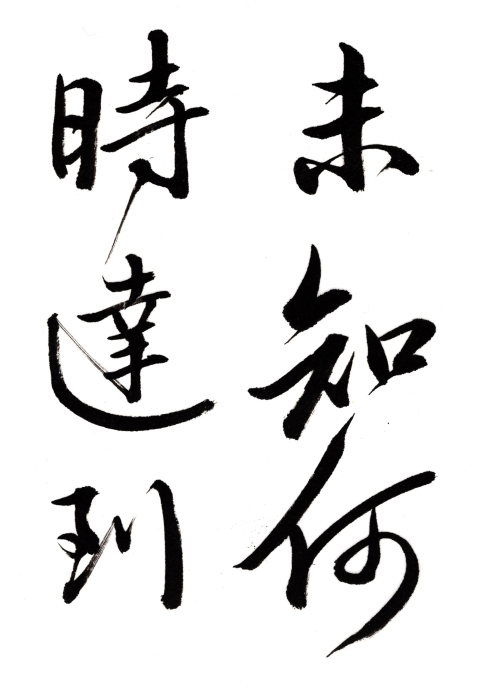 未知何
時達到